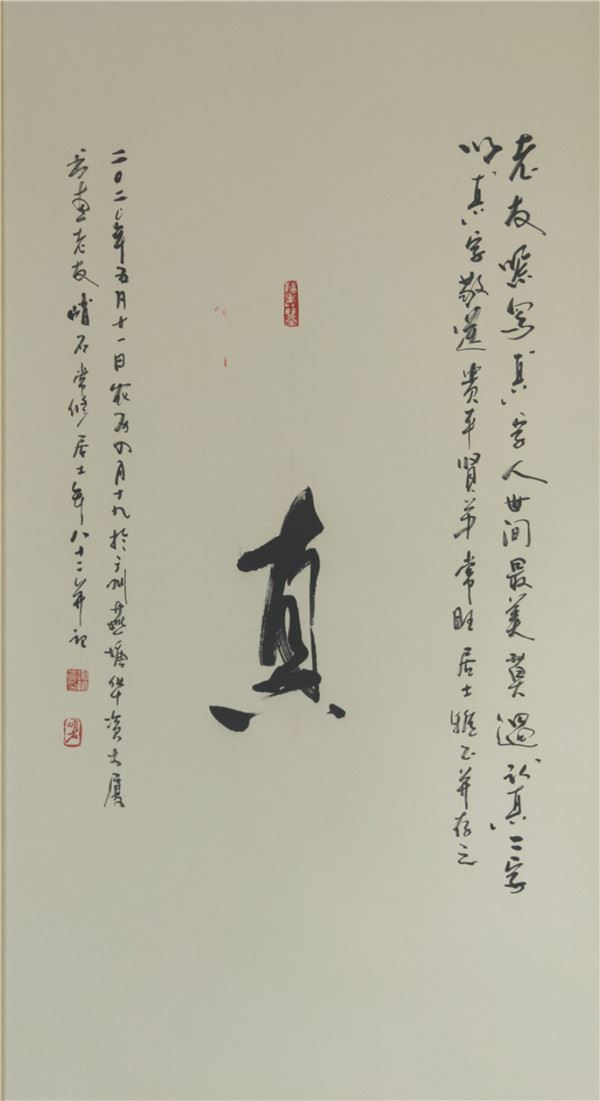 老友嘱写真字人世间最美莫过认真二字
以真字敬贵平贤弟常旺居士雅正并存之
真
二〇二〇年五月十一日农历四月十九於广州燕塘华资大厦
画老友石常修居士年八十二并记